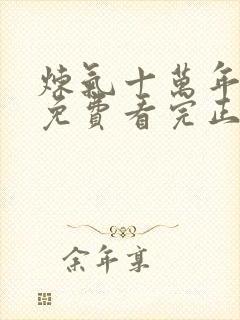 煉氣十萬年
免費看完正
余年享